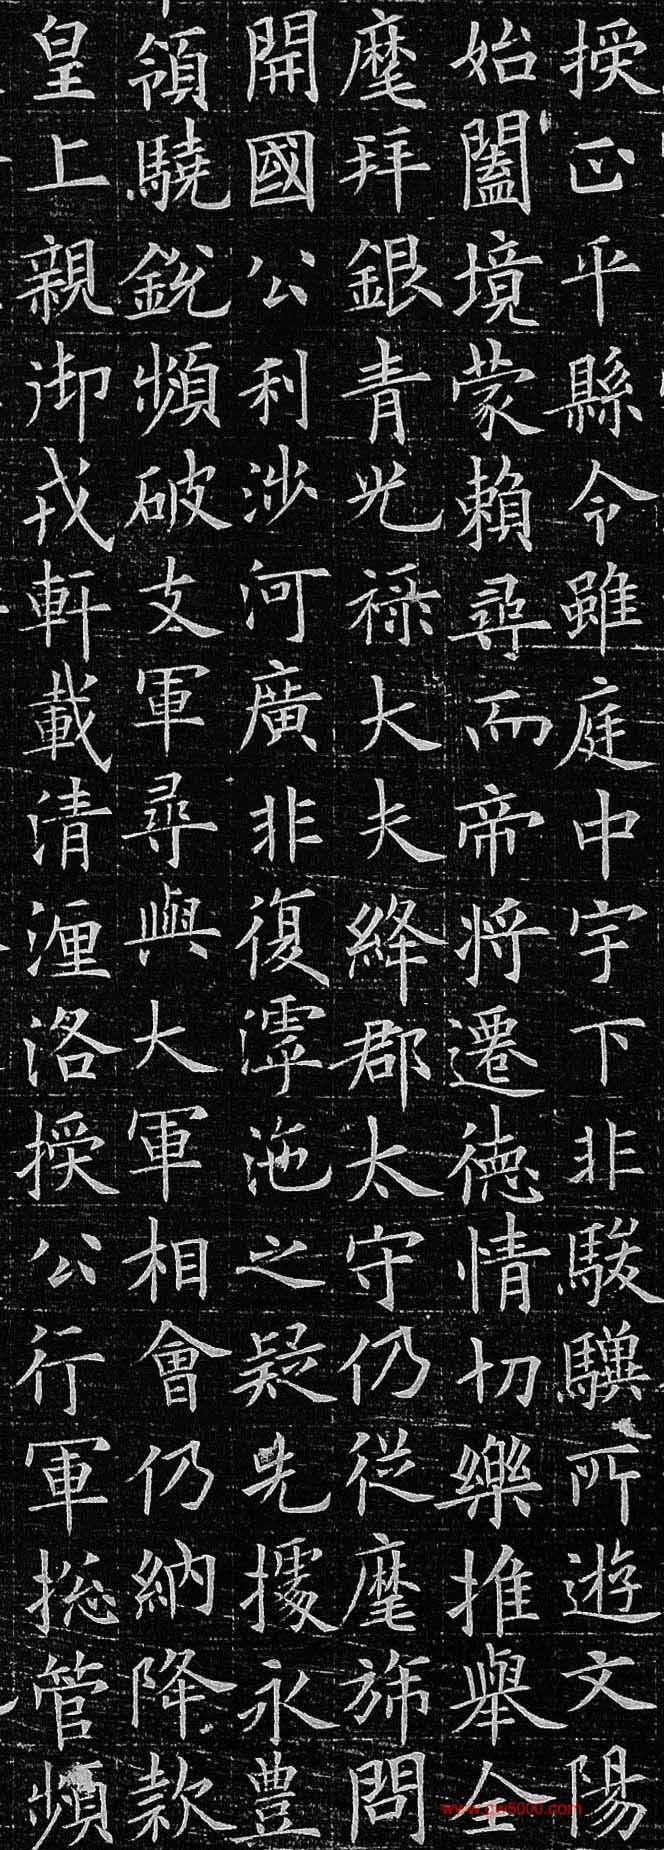 授正平縣令雖庭中宇下非駿驥所遊文陽
始闔境蒙賴尋而帝將遷德情切樂推舉全
麾拜銀青光祿大夫絳郡太守仍從麾旆問
開國公利涉河廣非復滹沲之疑先據永豊
領驍銳頻破支軍尋與大軍相會仍納降款
皇上親御戎軒載清瀍洛授公行軍揔管頻
www.gei5000.com